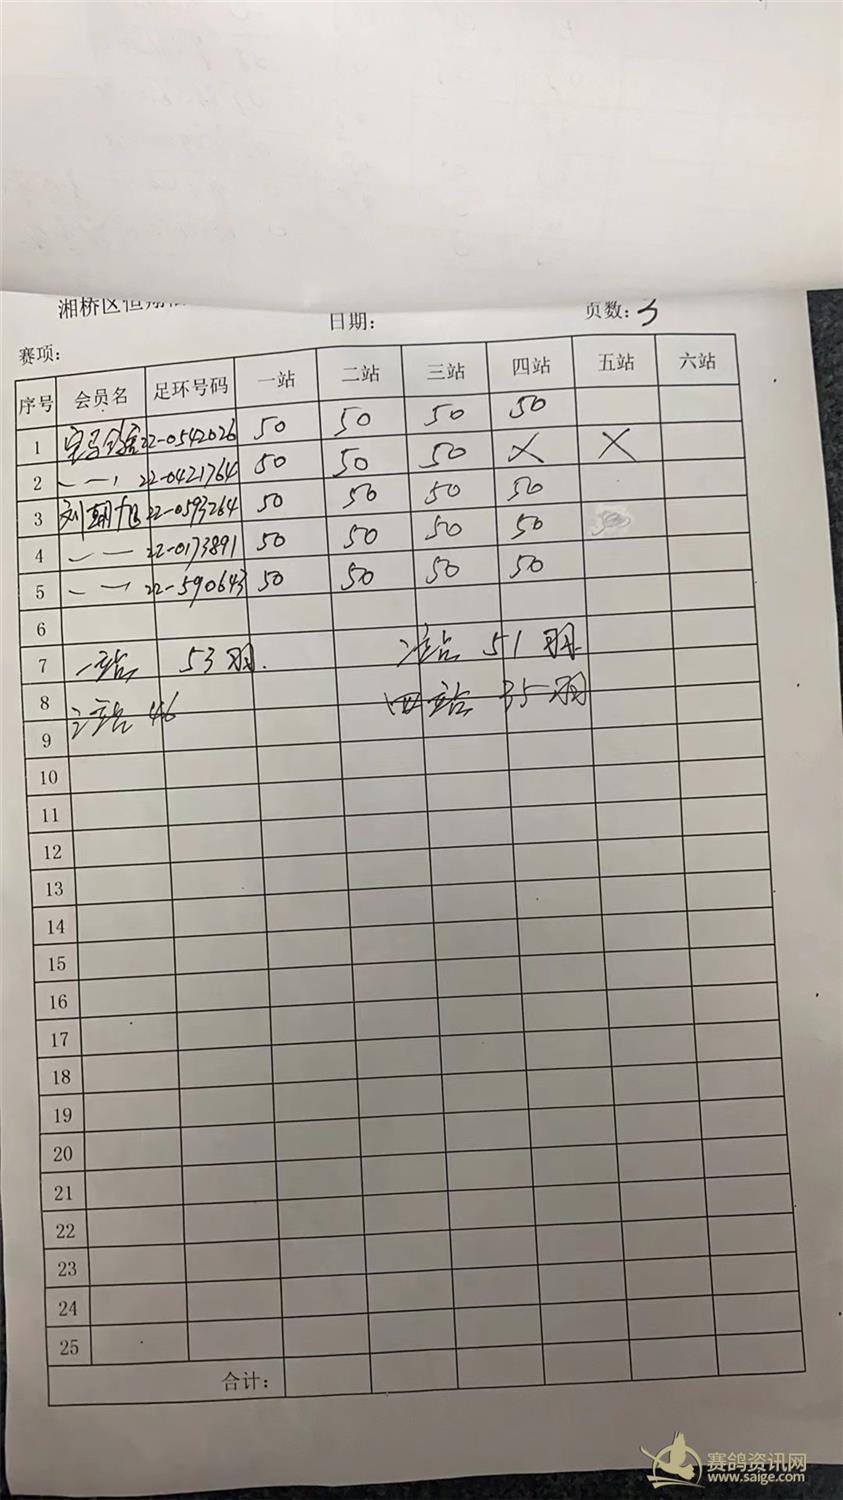 湘桥区恒翔
日期:
页数: 3
赛项:
序号 会员名 足环号码 一站 二站 三站 四站 五站 六站
1 22-0542026 50 50 50 50
2 一一, 22-0421764 50 50 50 X X
3 刘朝旭 22-0593264 50 50 50 50
4 一一 22-0173891 50 50 50 50
5 一一 22-590643 50 50 50 50
6
7 一站 53羽. 2站 51羽
8
三站 46 四站 35羽
9
10
11
12
13
14
15
16
17
18
19
20
21
22
23
24
25
合计:
赛鸽资讯网
www.saige.com